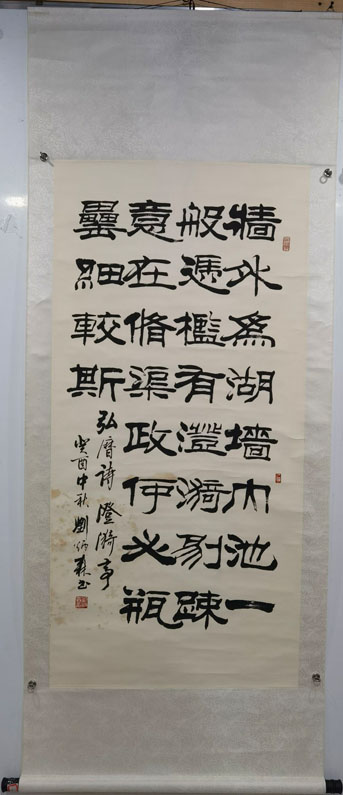 牆外為湖墻內池一
般憑檻有澄漪剔疎
意在脩渠政何必瓶
罍細較斯
弘曆詩 澄漪亭
癸酉中秋劉炳森書